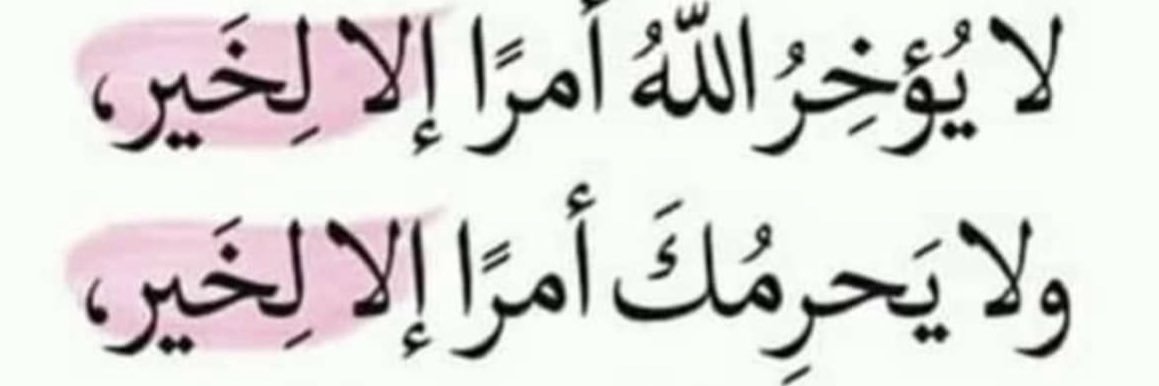 لا يُؤخِرُ اللّهُ أمرًا إلا لِخَير،
ولا يَحرِمُكَ أمرًا إلا لِخَير،